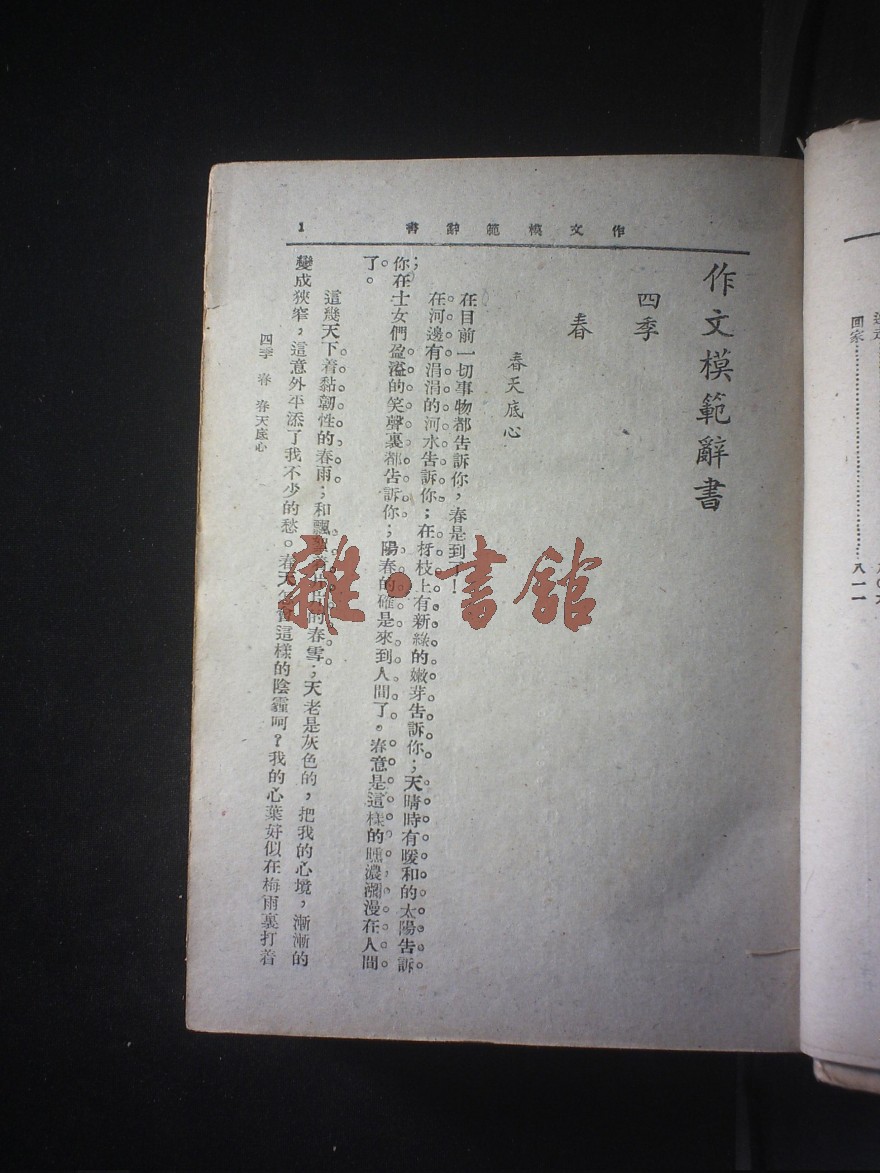 回家……………………………八一一
作文模範辭書
1
作文模範辭書
四季
春
春天底心
在目前一切事物都告訴你，春是到了！
在河邊有涓涓的河水告訴你；在枒枝上有新綠的嫩芽告訴你；天晴時有暖和的太陽告訴
你；在士女們盈溢的笑聲裏都告訴你；陽春的確是來到人間了。春意是這樣的醺濃瀰漫在人間
了。
這幾天下着黏韌性的春雨；和飄的春雪；天老是灰色的，把我的心境，漸漸的
變成狹窄，這意外平添了我不少的愁。春天怎會這樣的陰霾呵？我的心葉好似在梅雨裏打着
四季 春 春天底心
雜·書館